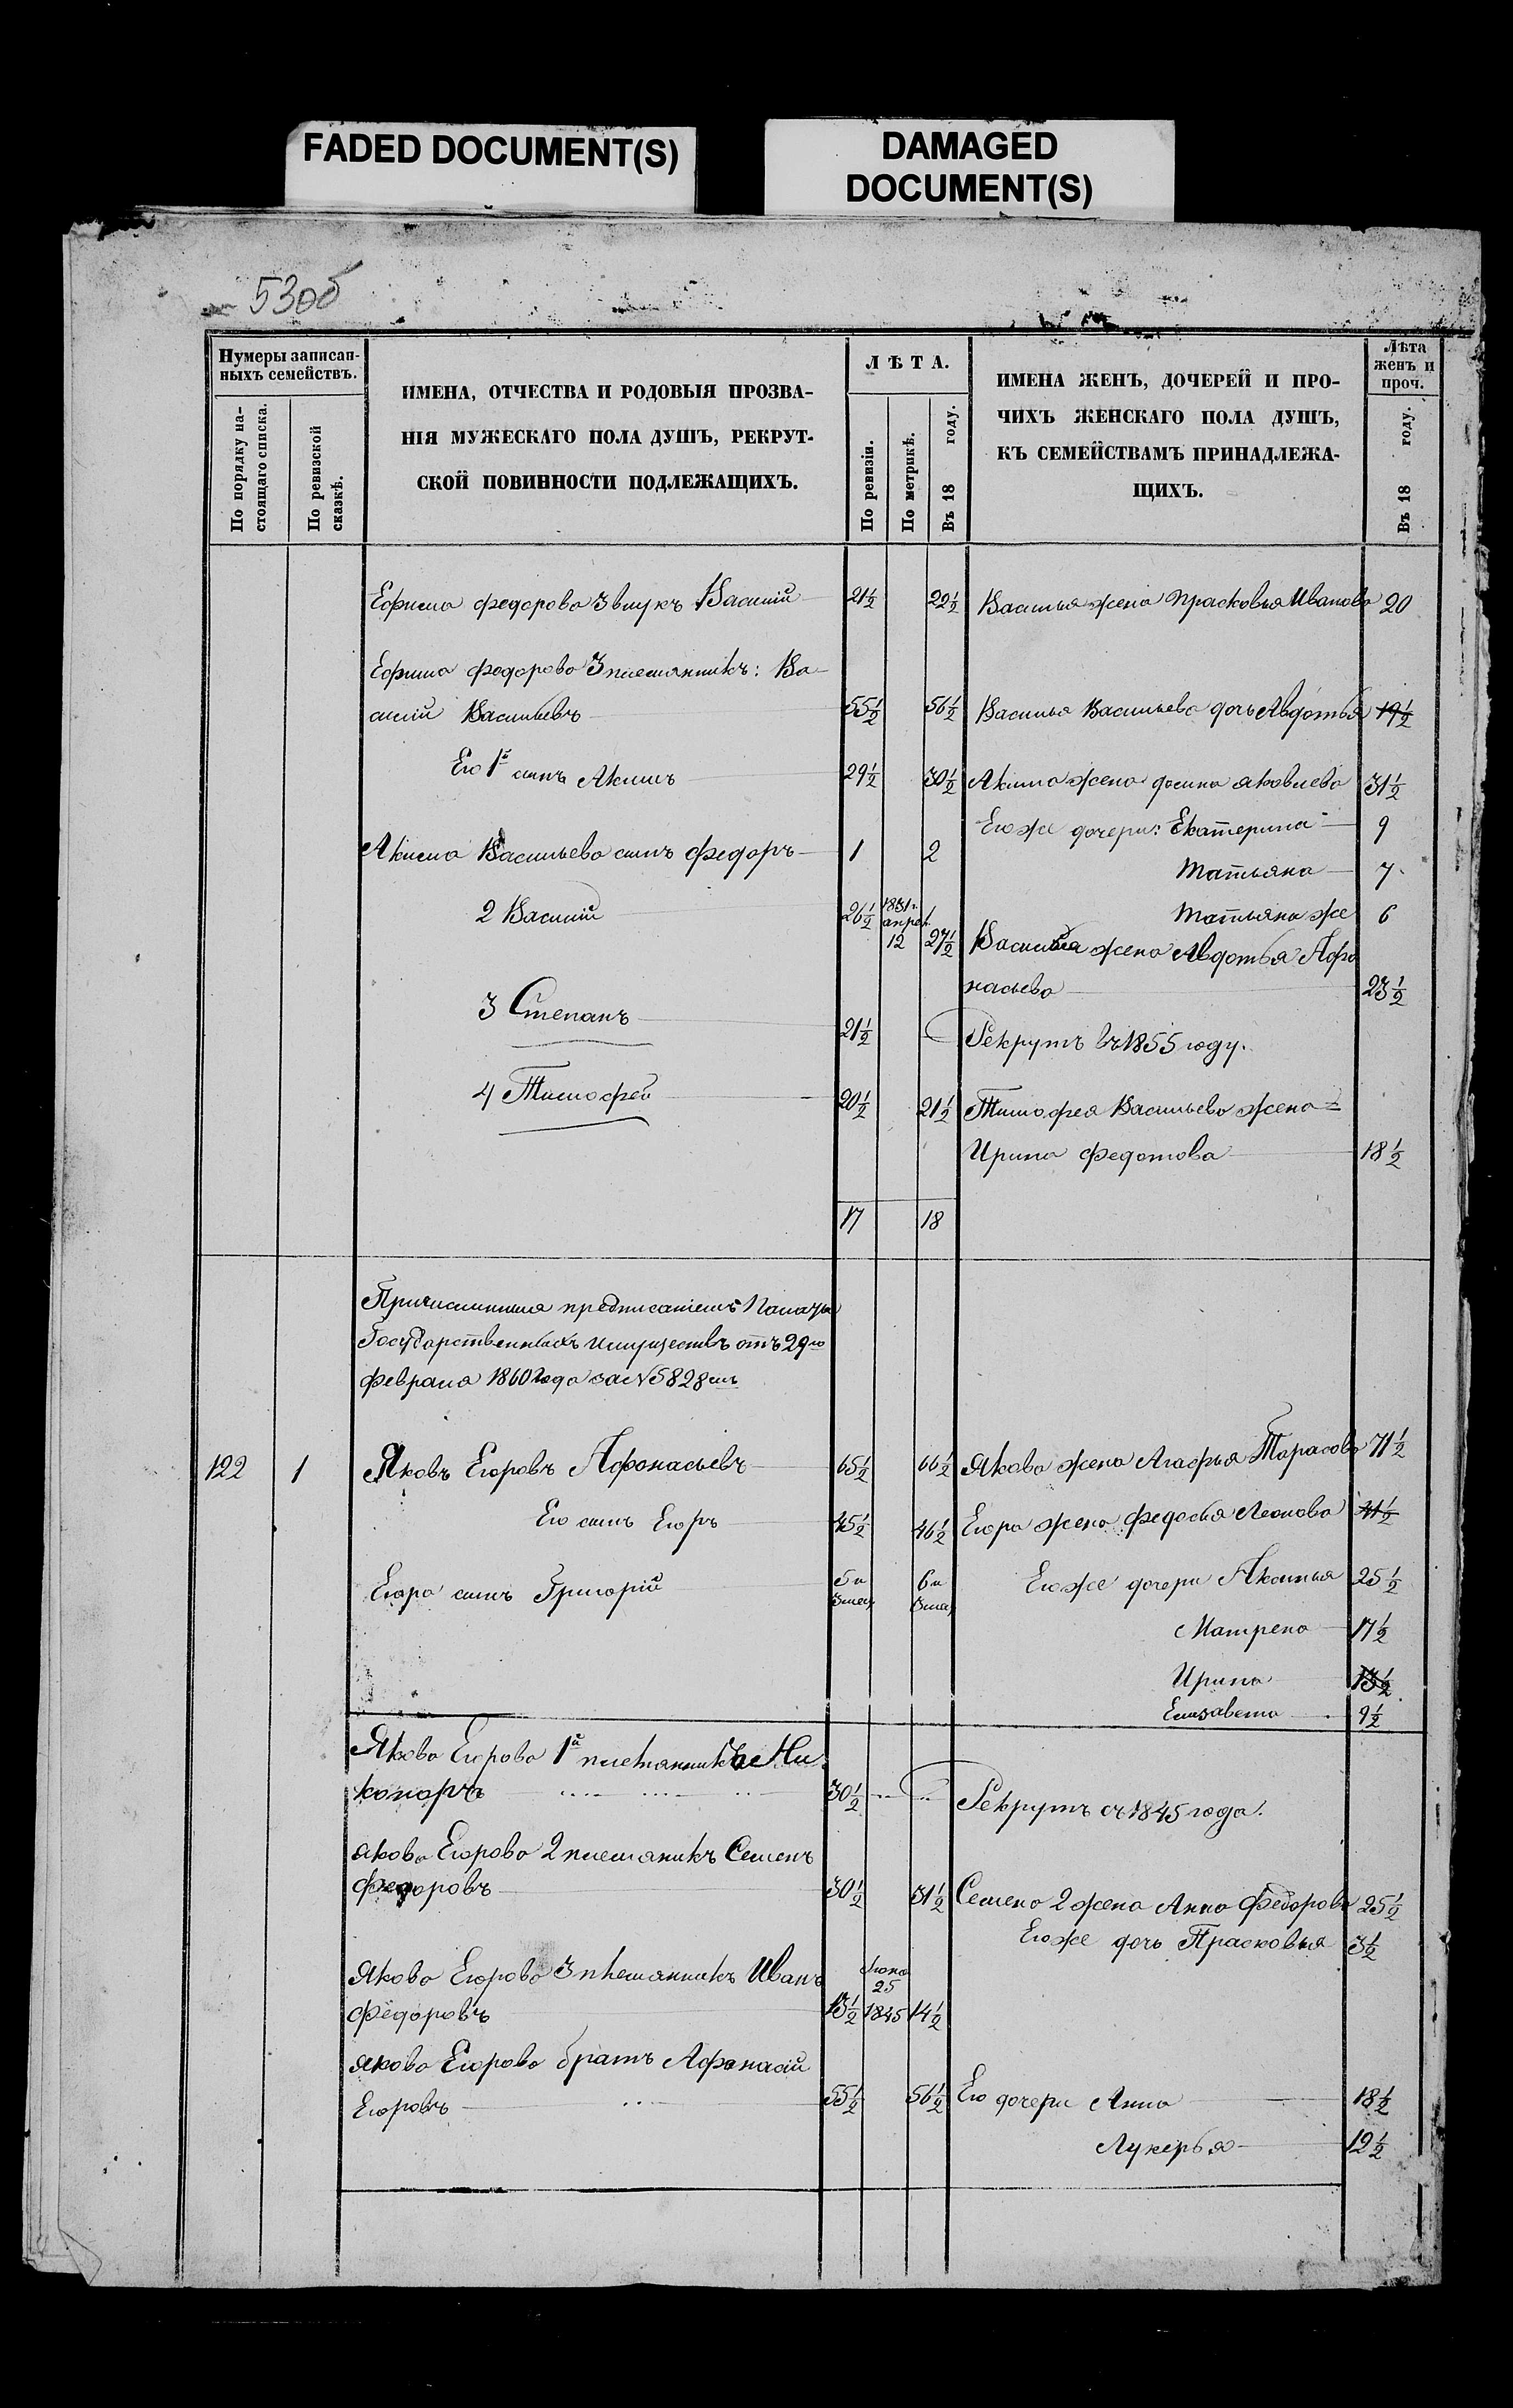 FADED DOCUMENT(S)
DAMAGED
DOCUMENT(S)
530б
Нумеры записан-
ныхъ семействъ.
По порядку на-
стоящаго списка.
По ревизской
сказкѣ.
ИМЕНА, ОТЧЕСТВА И РОДОВЫЯ ПРОЗВА-
НІЯ МУЖЕСКАГО ПОЛА ДУШЪ, РЕКРУТ-
СКОЙ ПОВИННОСТИ ПОДЛЕЖАЩИХЪ.
ЛѢТА.
По ревизіи.
По метрикѣ.
Въ 18 году.
ИМЕНА ЖЕНЪ, ДОЧЕРЕЙ И ПРО-
ЧИХЪ ЖЕНСКАГО ПОЛА ДУШЪ,
КЪ СЕМЕЙСТВАМЪ ПРИНАДЛЕЖА-
ЩИХЪ.
Лѣта
женъ и
проч.
Въ 18 году.
Ефима федорова 3 внукъ Василій 21½ 22½ Василья жена Прасковья Иванова 20
Ефима федорова 3 племянникъ: Ва-
силій Васильевъ 55½ 56½ Василья Васильева дочь Авдотья 19½
Его 1й сынъ Акимъ 29½ 30½ Акима жена Яковлева 31½
Его же дочери: Екатерина 9
Акима Васильева сынъ федоръ 1 2
Татьяна 7
2 Василій 26½ 1831г. апрел. 12 27½ Татьяна же 6
Василья жена Авдотья Афо
насьева 23½
3 Степанъ 21½ Рекрутъ въ 1855 году.
4 Тимофей 20½ 21½ Тимофея Васильева жена
Ирина федотова 18½
17 18
Причислишися предписаніемъ Палаты
Государственныхъ Имуществъ отъ 29го
февраля 1860 года за № 5828мъ
122 1 Яковъ Егоровъ Афонасьевъ 65½ 66½ Якова жена Агафья Тарасова 71½
Его сынъ Егоръ 45½ 46½ Егора жена федосья Леонова 41½
Егора сынъ Григорій 5 и 3 мец. 6 и 3 мец. Его же дочери Аксинья 25½
Матрена 17½
Ирина 13½
Елизавета 9½
Якова Егорова 1й племянникъ Ни
каноръ 30½ Рекрутъ съ 1845 года.
Якова Егорова 2 племяникъ Семенъ
федоровъ 30½ 31½ Семена 2 жена Анна федорова 25½
Его же дочь Прасковья 3½
Якова Егорова 3 племянникъ Иванъ
федоровъ 13½ 25 1845 14½
Якова Егорова братъ Афонасій
Егоровъ 55½ 56½ Его дочери Анна 18½
Лукерья 12½